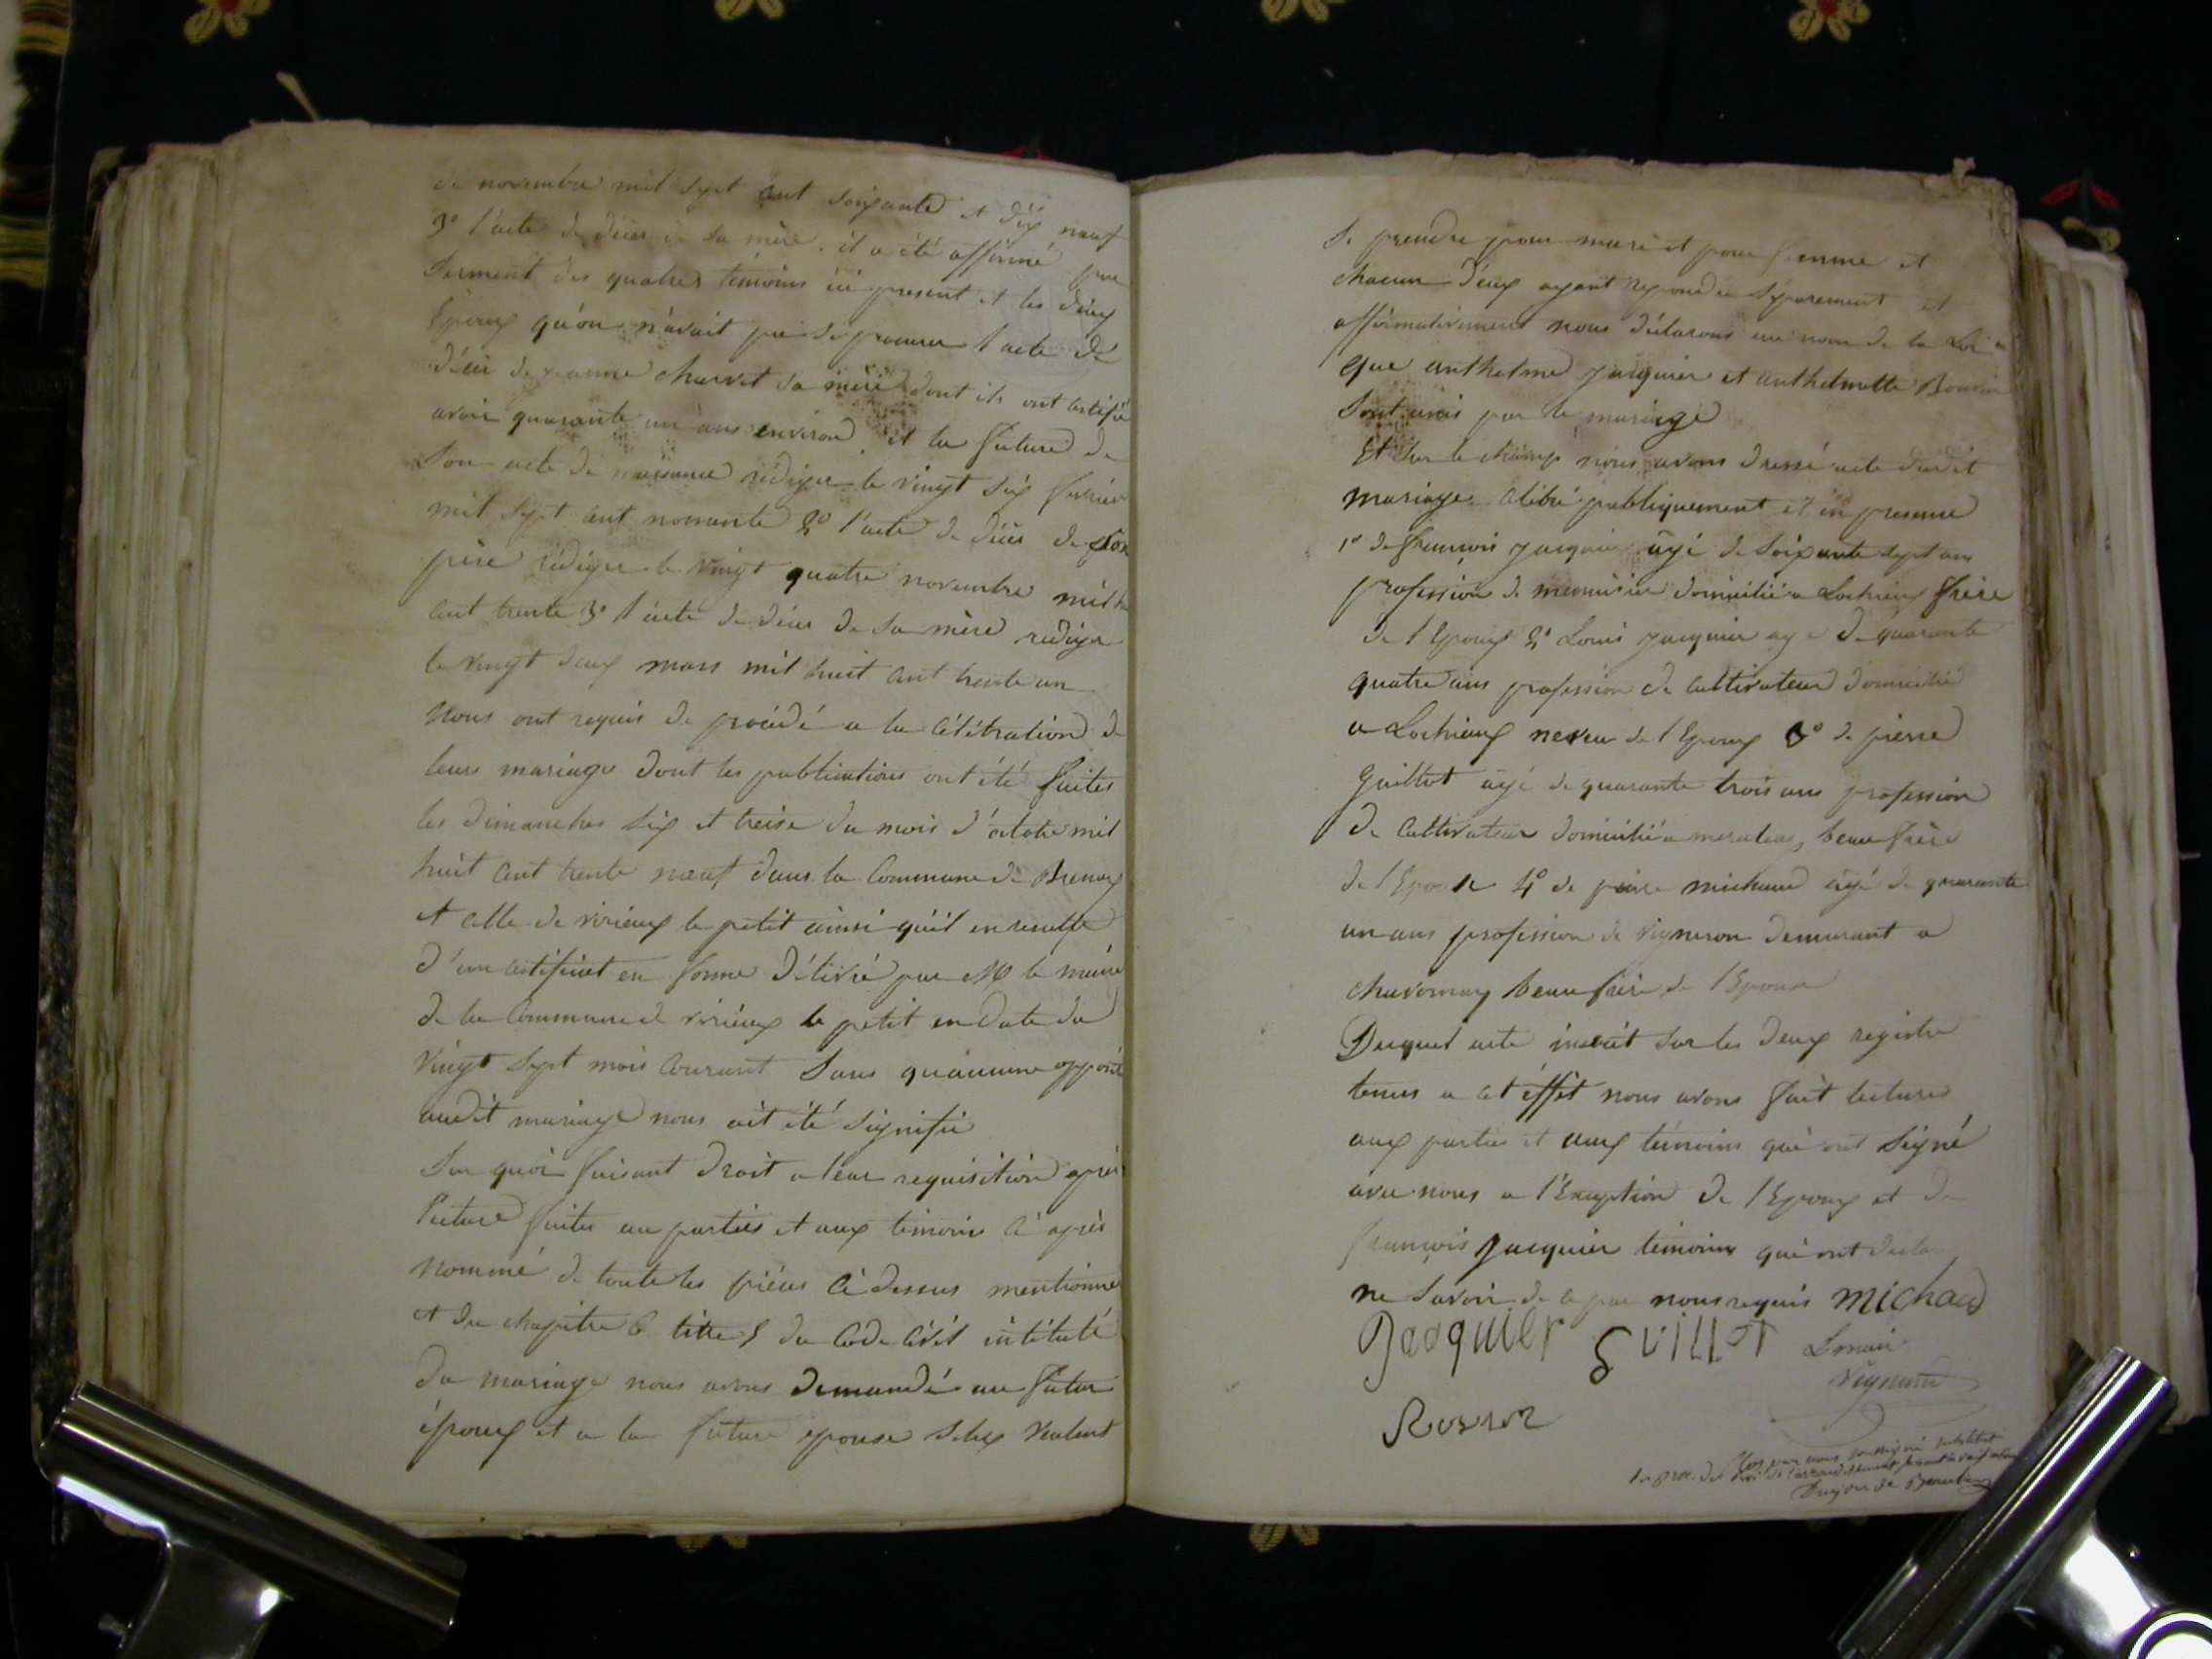 de novembre mil sept cent soixante et dix neuf
3º l'acte de décès de sa mère. il a été affirmé par
serment des quatres témoins ici present et les deux
Epoux qu'on n'avait pu se procurer l'acte de
décès de jeanne charvet sa mère dont ils ont certifié
avoir quarante un ans environ et la future de
son acte de naissance rédiger le vingt six fevrier
mil sept cent nonante 2º l'acte de décès de son
père rédiger le vingt quatre novembre mil huit
cent trente 3º l'acte de décès de sa mère rediger
le vingt deux mars mil huit cent trente un
Nous ont requis de procédé a la célébration de
leurs mariage dont les publications ont été faites
les dimanches six et treise du mois d'octobre mil
huit cent trente neuf dans la Commune de Brenaz
et celle de virieux le petit ainsi qu'il en resulte
d'un certificat en forme délivré par Mr le maire
de la Commune de virieux le petit en date du
vingt sept mois courant sans qu'aucune opposit
audit mariage nous ait été signifié
Sur quoi faisant droit a leur requisition après
lecture faites au parties et aux témoins ci après
nommé de toute les pièces ci dessus mentionnes
et du chapitre 6 titre 5 du Code Civil intitulé
du mariage nous avons demandé au futur
époux et a la future epouse s'ils veulent
se prendre pour mari et pour femme et
chacun d'eux ayant repondu séparement et
affirmativement nous déclarons au nom de la Loi
que anthelme jacquier et anthelmette
sont unis par le mariage
Et sur le champ nous avons dressé acte dudit
mariage célébré publiquement et en presence
1º de françois jacquier agé de soixante sept ans
profession de menuisier domicilié a Lochieux frère
de l'Epoux 2º Louis jacquier agé de quarante
quatre ans profession de cultivateur domicilié
a Lochieux neveu de l'Epoux 3º de pierre
guillot agé de quarante trois ans profession
de cultivateur domicilié a beau frère
de l'Epouse 4º de pierre michaud agé de quarante
un ans profession de vigneron demeurant a
chavornay beau frère de l'Epouse
Duquel acte inscrit sur les deux registre
tenus a cet éffèt nous avons fait lectures
aux parties et aux témoins qui ont signé
avec nous a l'Exception de l'Epoux et de
françois jacquier témoins qui ont declaré
ne savoir de ce par nous requis michaud
Jacquier guillot Le maire

Clos par nous soussigné substitut